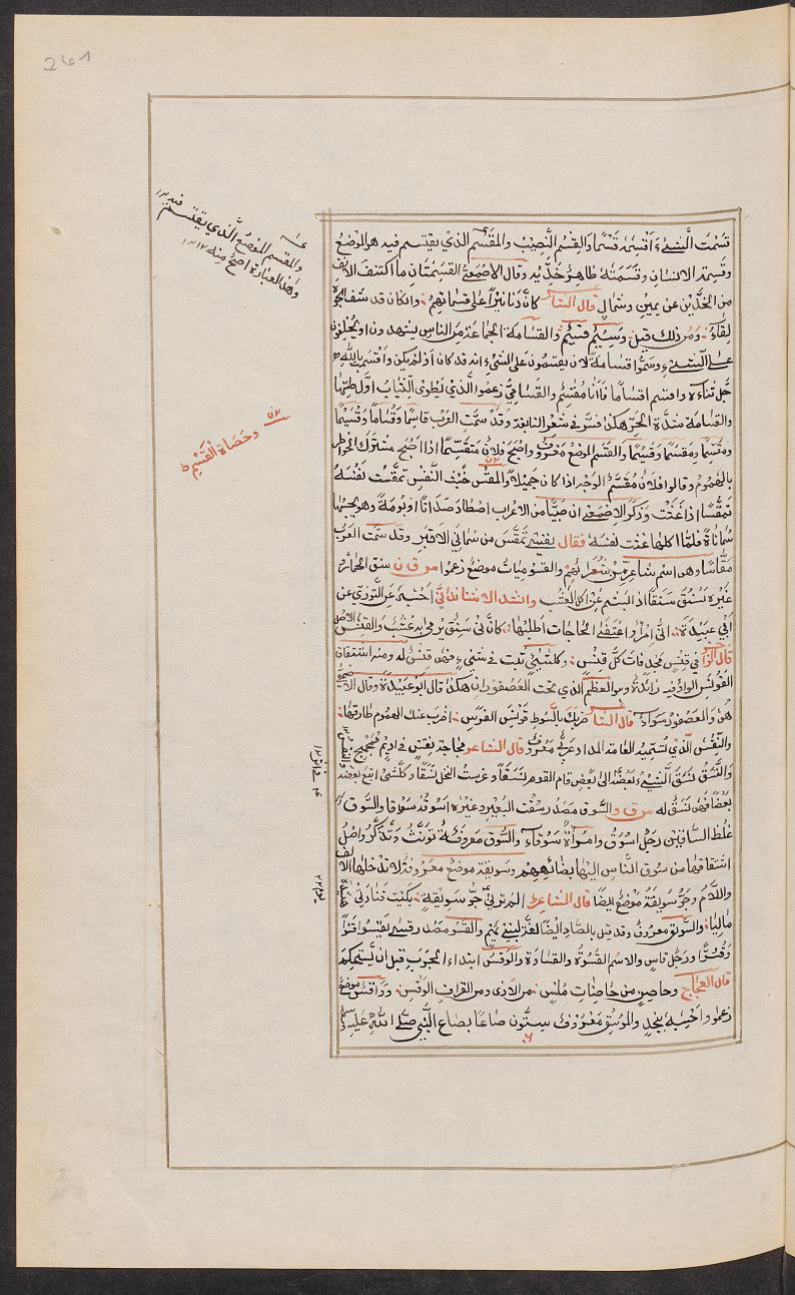 261
قسمت الشيء اقسمه قسما والقسم النصيب والمقسم الذي يقتسم فيه هو الموضع
وقسمة الانسان وقسمته ظاهر خديه وقال الاصمعي القسمتان ما اكتنف الانف
من الخدين عن يمين وشمال قال الشاعر كان دنانيرا على قسماتهم وان كان قد شف الوجوه
لقاء ومن ذلك قيل وسيم قسيم والقسامة الجماعة من الناس يشهدون او يحلفون
على الشيء وسموا قسامة لان يقسمون على الشيء انه قد كان او لم يكن واقسمت بالله
جل ثناءه واقسم اقساما فانا مقسم والقسامي زعموا الذي يطوي الثياب اول طيها
والقسامة شدة الحر هكذا فسر في شعر النابغة وقد سمت العرب قاسما وقساما وقسيما
ومقسما ومقسما وقسيما والقسم الموضع معروف واصبح فلان متقسما اذا اصبح مشترك الخواطر
بالهموم وقالوا فلان مقسم الوجه اذا كان جميلا والمقس خبث النفس تمقست نفسه
تمقسا اذا غثت وذكر الاصمعي ان صبيا من الاعراب اصطاد صدا او بومة وهو يحسبها
سماناة فلما اكلها غثت نفسه فقال نفسي تمقس من سماني الاقبر وقد سمت العرب
مقاسا وهو اسم شاعر من شعرائهم والقسوميات موضع زعموا س ق ن سنق الحمار
غيره يسنق سنقا اذا بشم عن اكل العشب وانشد الاشنانداني اخبره عن التوزي عن
ابي عبيدة اني امرؤ اعتفي الحاجات اطلبها كان في سنق يرمى به عشب والقنس الاصل
قال الراجز في قنس مجد فات كل قنس وكل شيء ثبت في شيء فهو قنس له ومنه اشتقاق
القونس الواو فيه زائدة وهو العظم الذي تحت العصفورين هكذا قال ابو عبيدة وقال الاصمعي
هو والعصفور سواء قال الشاعر ضربك بالسوط قونس الفرس اضرب عنك الهموم طارقها
والنقس الذي تسميه العامة المداد عربي معروف قال الشاعر مجاجة نقس في اديم ممجمج
والنسق نسق الشيء بعضه الى بعض قام القوم نسقا وغرست النخل نسقا وكل شيء اتبع بعضه
بعضا فهو نسق له س ق و السوق مصدر سقت البعير وغيره اسوقه سوقا والسوق
غلظ الساقين رجل اسوق وامراة سوقاء والسوق معروفة تؤنث وتذكر واصل
اشتقاقها من سوق الناس اليها بضائعهم وسويقة موضع معروفة لا تدخلها الالف
واللام وجو سويقة موضع ايضا قال الشاعر الم ترني جو سويقة بكيت فنادتني هنيدة
ماليا والسويق معروف وقد قيل بالصاد ايضا لغة لبني تميم والقسو مصدر قسى يقسوا قسوا
وقسوا ورجل قاس والاسم القسوة والقساوة والوقس ابتداء الجرب قبل ان يستحكم
قال العجاج وحاصن من حاصنات ملس من الاذى ومن قراف الوقس وواقس موضع
زعموا واحسبه بنجد والوسق معروف ستون صاعا بصاع النبي صلى الله عليه
والمقسم الموضع الذي يقتسم فيه
وهذا العبارة اوضح منه ١٢
وحصاة القسم